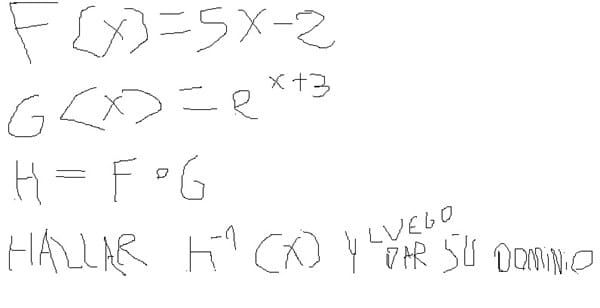 F(x)=5x-2
G(x)=e^{x+3}
H=F∘G
HALLAR h^{-1}(x) Y LUEGO DAR SU DOMINIO